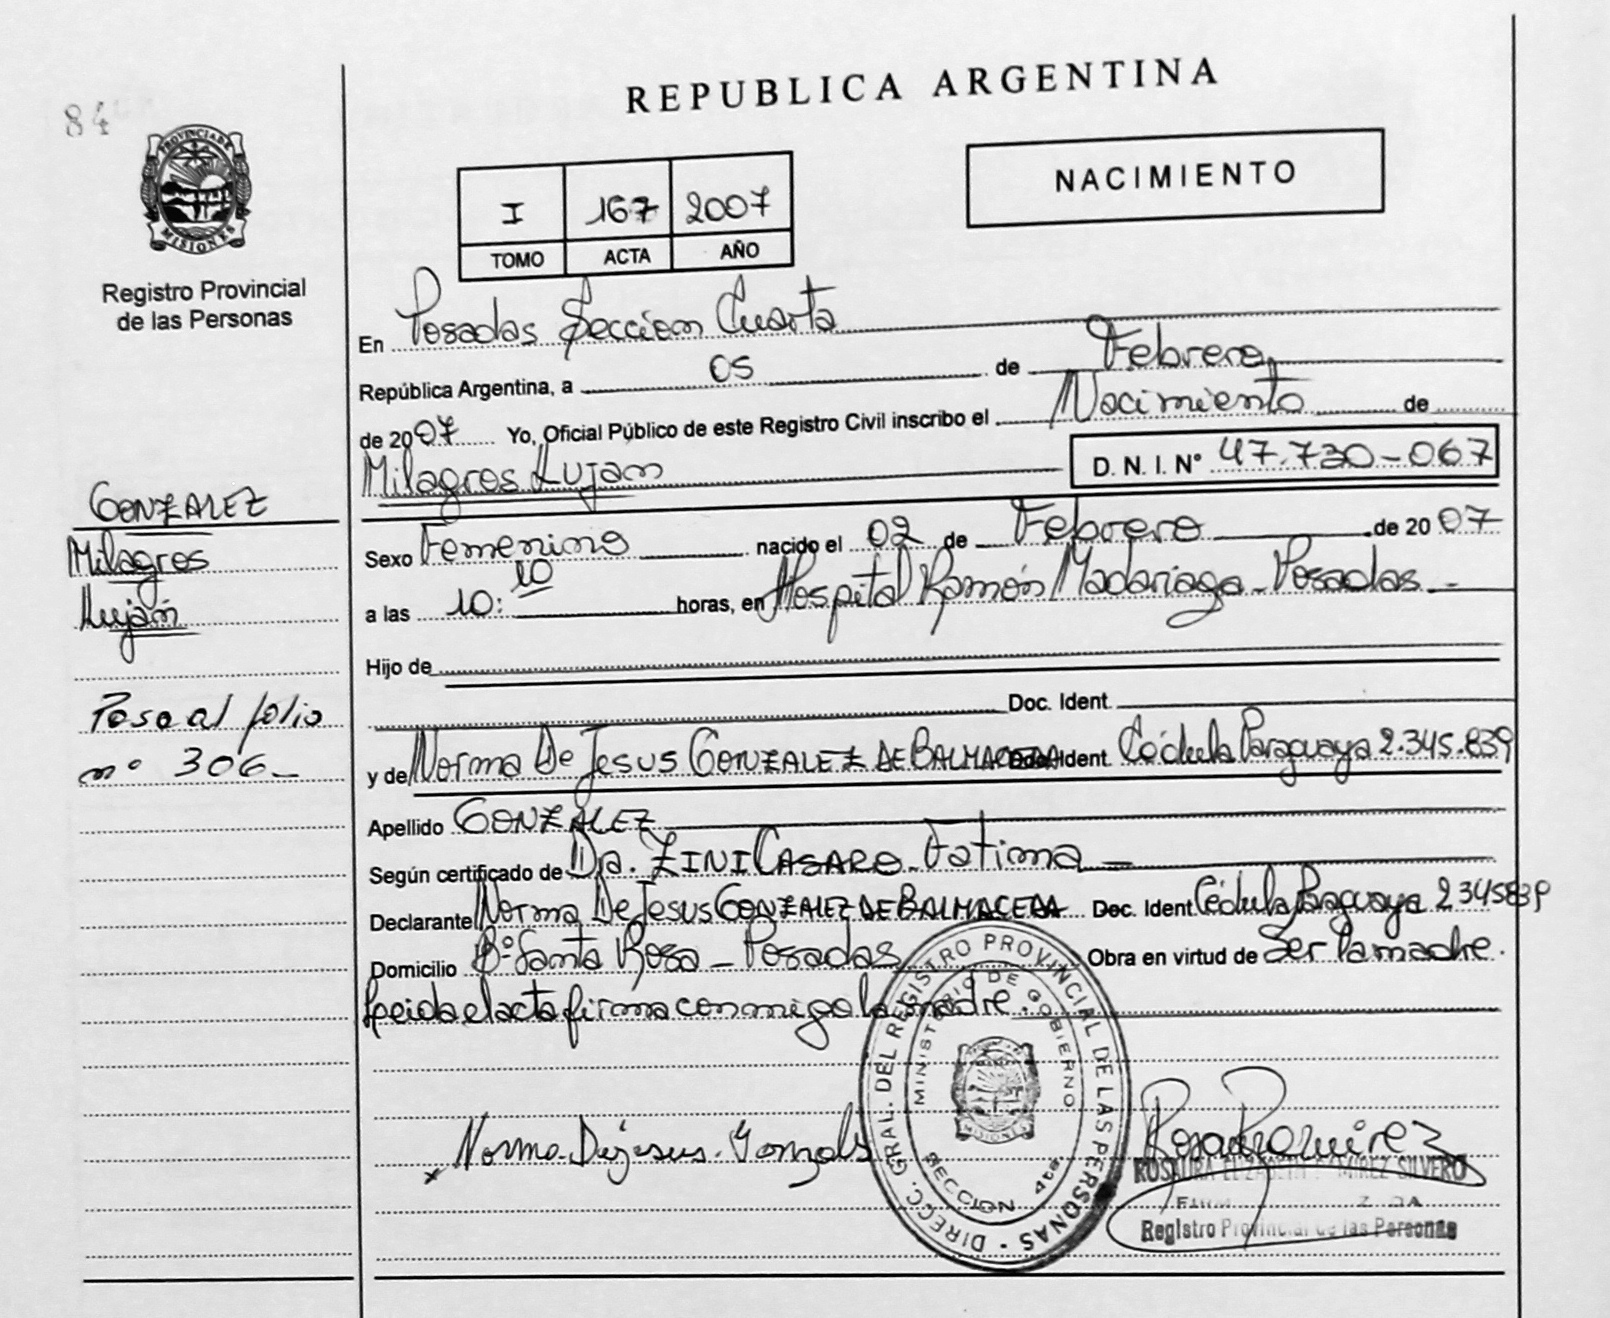 84
REPUBLICA ARGENTINA
PROVINCIA DE MISIONES
Registro Provincial
de las Personas
I 167 2007
TOMO ACTA AÑO
NACIMIENTO
En Posadas Seccion Cuarta
República Argentina, a 05 de Febrero
de 2007 Yo, Oficial Público de este Registro Civil inscribo el Nacimiento de
Milagros Lujan D. N. I. N° 47.730-067
GONZALEZ
Milagros
Luján
Pasa al folio
nº 306_
Sexo Femenino nacido el 02 de Febrero de 2007
a las 10:10 horas, en Hospital Ramón Madariaga - Posadas -
Hijo de
Doc. Ident.
y de Norma De Jesus GONZALEZ DE BALMACEDA Doc. Ident. Cédula Paraguaya 2.345.839
Apellido GONZALEZ
Según certificado de Dra. ZINI CASARO - Fatima -
Declarante Norma De Jesus GONZALEZ DE BALMACEDA Doc. Ident. Cédula Paraguaya 2345839
Domicilio Bº Santa Rosa - Posadas Obra en virtud de Ser la madre.
Leida el acta firma conmigo la madre.
DIRECC. GRAL. DEL REGISTRO PROVINCIAL DE LAS PERSONAS
MINISTERIO DE GOBIERNO
MISIONES
SECCION 4ta.
x Norma Dejesus. Gonzals
Rosa Ramirez
ROSAURA ELIZABETH RAMIREZ SILVERO
Registro Provincial de las Personas